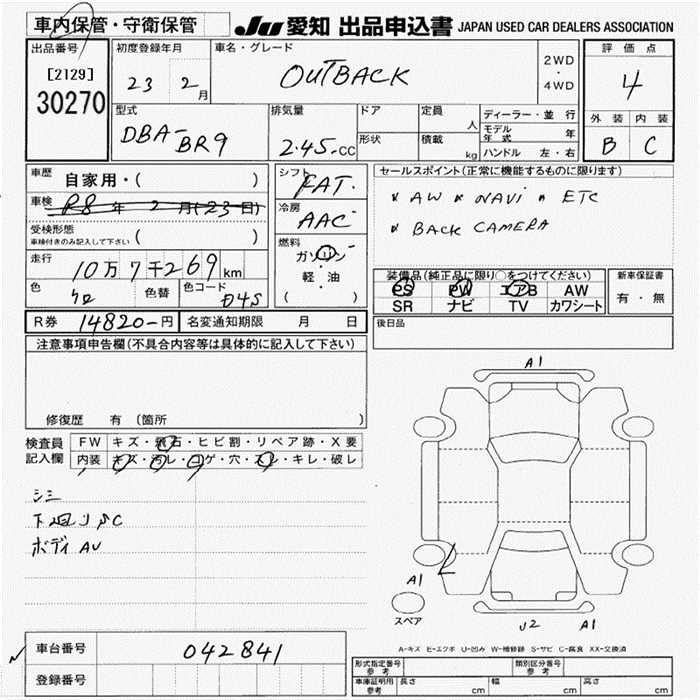 車内保管・守衛保管 JU 愛知 出品申込書 JAPAN USED CAR DEALERS ASSOCIATION
出品番号
[2129]
30270
初度登録年月
23 2月
車名・グレード
OUTBACK
2WD
・
4WD
評価点
4
外装 内装
B C
型式
DBA-BR9
排気量
2.45 cc
ドア
形状
定員
人
積載
kg
ディーラー・並行
モデル年式 年
ハンドル 左・右
車歴 自家用・( )
車検 R8年 2月(23日)
受検形態
車検付きのみ記入して下さい ( )
走行 10万7千269km
色
色替
色コード
D4S
シフト
FAT.
冷房
AAC
燃料
ガソリン
・
軽・油
( )
セールスポイント(正常に機能するものに限ります)
* AW * NAVi * ETC
* BACK CAMERA
装備品(純正品に限り○をつけてください)
PS PW エアB AW
SR ナビ TV カワシート
新車保証書
有・無
R券 14820-円 名変通知期限 月 日
後日品
注意事項申告欄(不具合内容等は具体的に記入して下さい)
修復歴 有 〔箇所 〕
検査員記入欄
FW キズ・飛石・ヒビ割・リペア跡・X要
内装 キズ・汚レ・コゲ・穴・スレ・キレ・破レ
シミ
下廻りSC
ボディAU
A1
A1
スペア
U2 A1
A-キズ E-エクボ U-凹み W-補修跡 S-サビ C-腐食 XX-交換済
車台番号 042841
登録番号
形式指定番号
参考
類別区分番号
参考
車庫証明用
参考
長さ cm 幅 cm 高さ cm